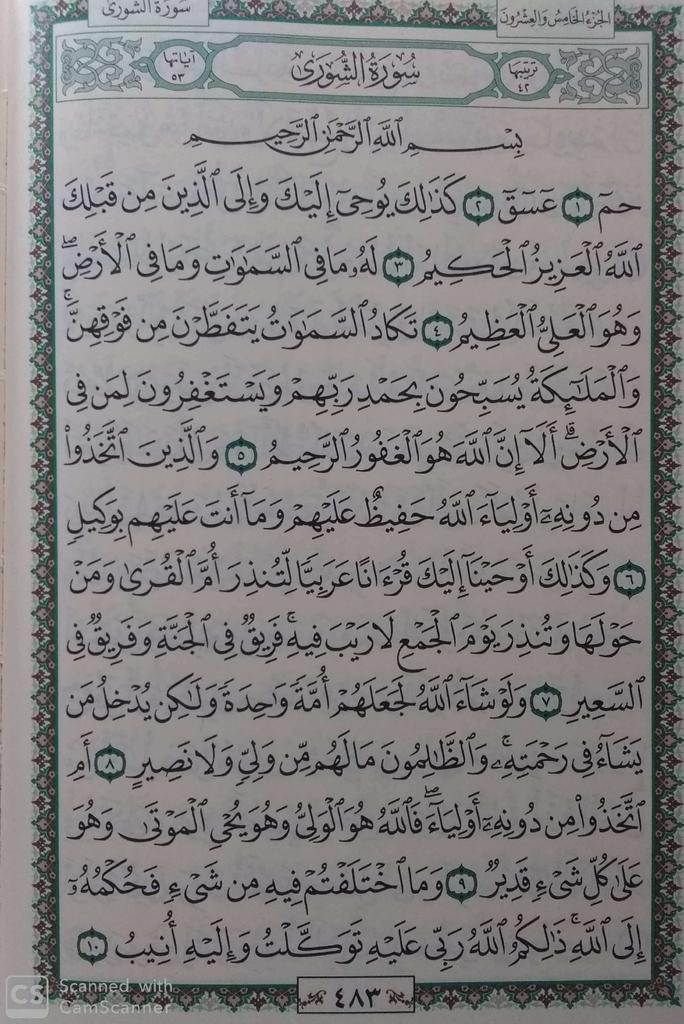 سُورَةُ الشُّورَىٰ
الجُزءُ الخَامِسُ وَالعِشْرُونَ
ترتيبها ٤٢
سُورَةُ الشُّورَىٰ
آياتها ٥٣
بِسْمِ ٱللَّهِ ٱلرَّحْمَٰنِ ٱلرَّحِيمِ
حمٓ ١ عٓسٓقٓ ٢ كَذَٰلِكَ يُوحِىٓ إِلَيْكَ وَإِلَى ٱلَّذِينَ مِن قَبْلِكَ
ٱللَّهُ ٱلْعَزِيزُ ٱلْحَكِيمُ ٣ لَهُۥ مَا فِى ٱلسَّمَٰوَٰتِ وَمَا فِى ٱلْأَرْضِۖ
وَهُوَ ٱلْعَلِىُّ ٱلْعَظِيمُ ٤ تَكَادُ ٱلسَّمَٰوَٰتُ يَتَفَطَّرْنَ مِن فَوْقِهِنَّۚ
وَٱلْمَلَٰٓئِكَةُ يُسَبِّحُونَ بِحَمْدِ رَبِّهِمْ وَيَسْتَغْفِرُونَ لِمَن فِى
ٱلْأَرْضِۗ أَلَآ إِنَّ ٱللَّهَ هُوَ ٱلْغَفُورُ ٱلرَّحِيمُ ٥ وَٱلَّذِينَ ٱتَّخَذُوا۟
مِن دُونِهِۦٓ أَوْلِيَآءَ ٱللَّهُ حَفِيظٌ عَلَيْهِمْ وَمَآ أَنتَ عَلَيْهِم بِوَكِيلٍ
٦ وَكَذَٰلِكَ أَوْحَيْنَآ إِلَيْكَ قُرْءَانًا عَرَبِيًّا لِّتُنذِرَ أُمَّ ٱلْقُرَىٰ وَمَنْ
حَوْلَهَا وَتُنذِرَ يَوْمَ ٱلْجَمْعِ لَا رَيْبَ فِيهِۚ فَرِيقٌ فِى ٱلْجَنَّةِ وَفَرِيقٌ فِى
ٱلسَّعِيرِ ٧ وَلَوْ شَآءَ ٱللَّهُ لَجَعَلَهُمْ أُمَّةً وَٰحِدَةً وَلَٰكِن يُدْخِلُ مَن
يَشَآءُ فِى رَحْمَتِهِۦۚ وَٱلظَّٰلِمُونَ مَا لَهُم مِّن وَلِىٍّ وَلَا نَصِيرٍ ٨ أَمِ
ٱتَّخَذُوا۟ مِن دُونِهِۦٓ أَوْلِيَآءَۖ فَٱللَّهُ هُوَ ٱلْوَلِىُّ وَهُوَ يُحْىِ ٱلْمَوْتَىٰ وَهُوَ
عَلَىٰ كُلِّ شَىْءٍ قَدِيرٌ ٩ وَمَا ٱخْتَلَفْتُمْ فِيهِ مِن شَىْءٍ فَحُكْمُهُۥٓ
إِلَى ٱللَّهِۚ ذَٰلِكُمُ ٱللَّهُ رَبِّى عَلَيْهِ تَوَكَّلْتُ وَإِلَيْهِ أُنِيبُ ١٠
٤٨٣
CS Scanned with
CamScanner